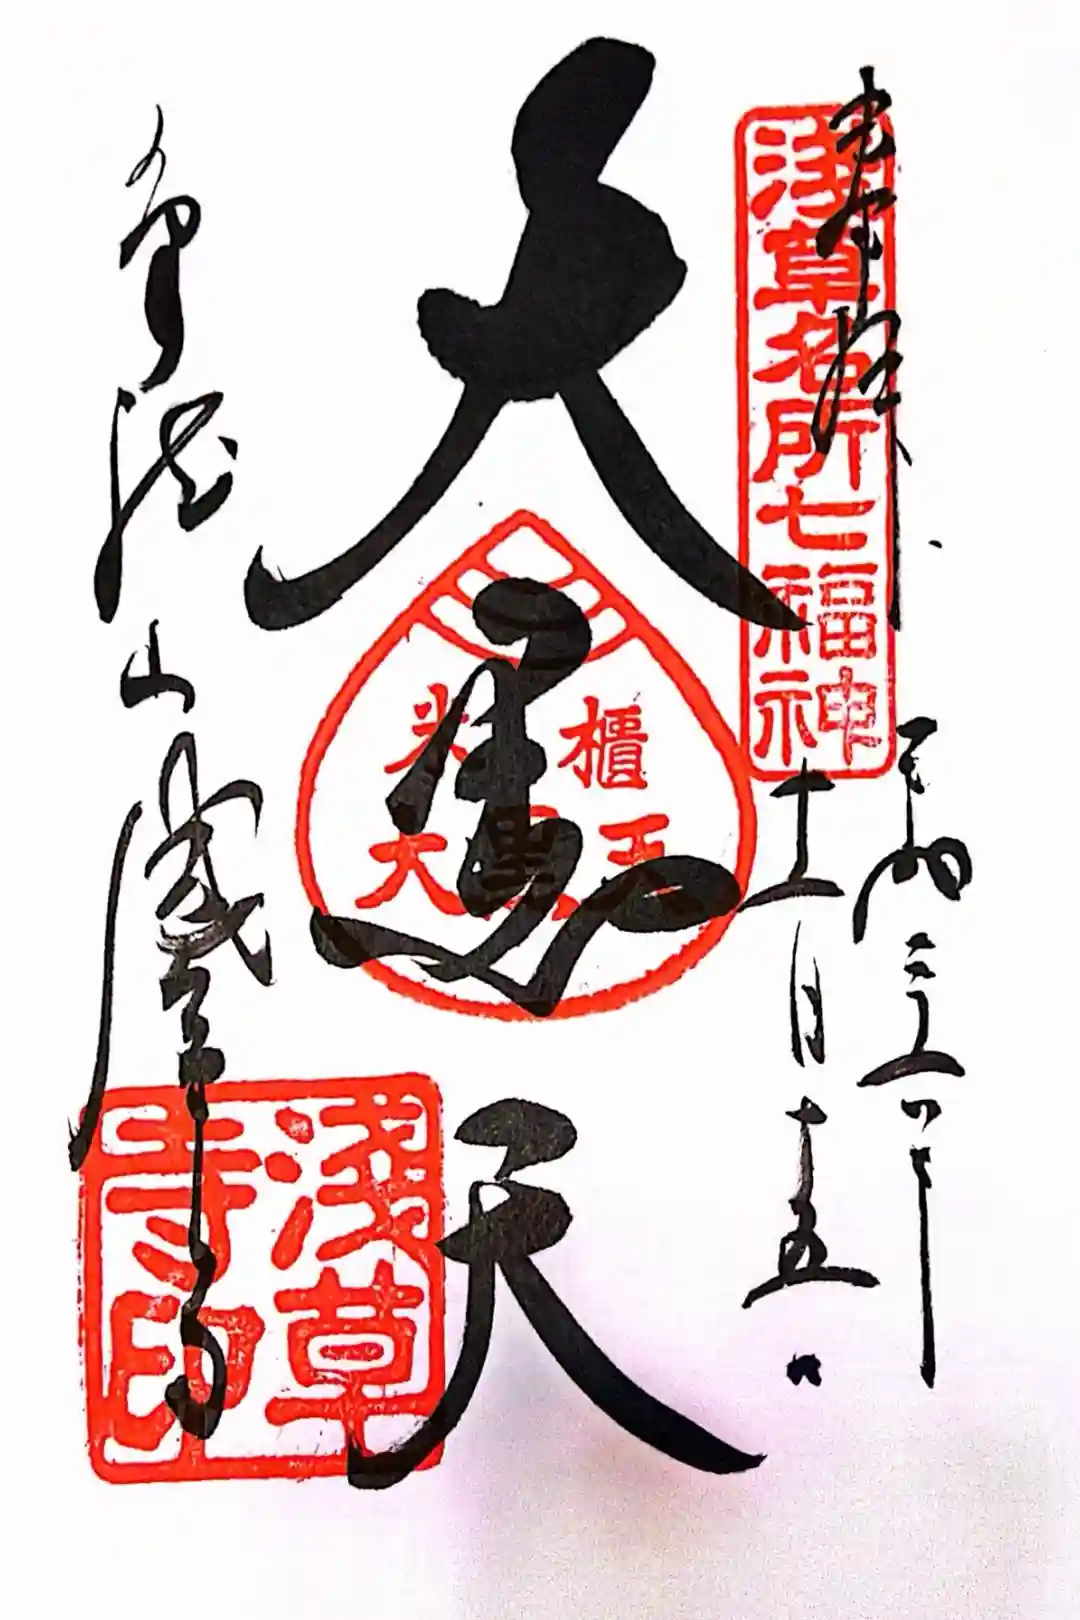 奉拝
淺草名所七福神
平成
十一月十五日
大黒天
米櫃
大黒天
金龍山
浅草寺
淺草
寺印